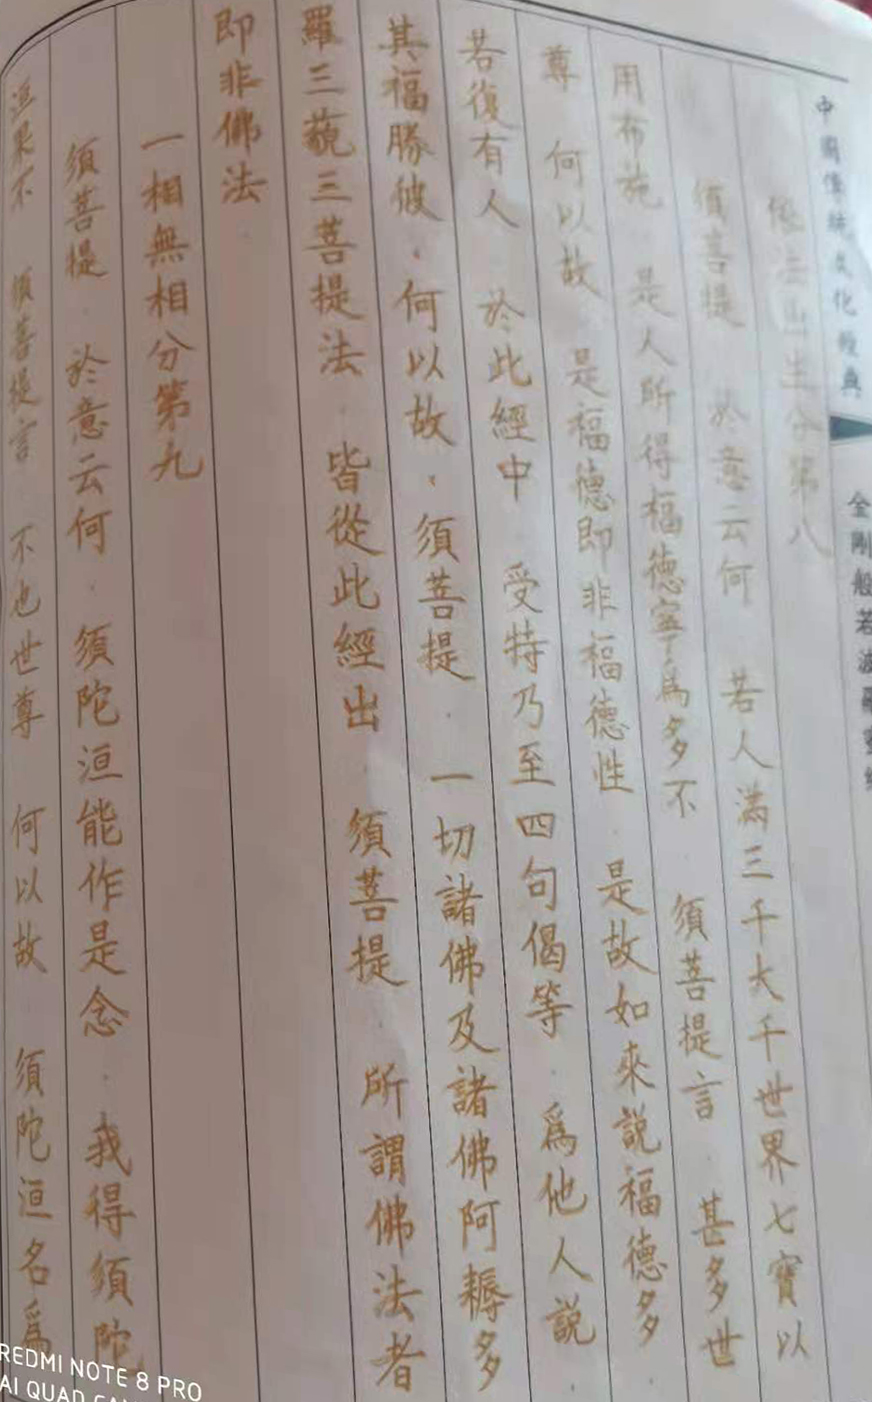 中國傳統文化經典
金剛般若波羅蜜經
依法出生分第八
須菩提 於意云何 若人滿三千大千世界七寶以
用布施 是人所得福德寧為多不 須菩提言 甚多世
尊 何以故 是福德即非福德性 是故如來說福德多
若復有人 於此經中 受特乃至四句偈等 爲他人説
其福勝彼、何以故、須菩提 一切諸佛及諸佛阿耨多
羅三藐三菩提法 皆從此經出 須菩提 所謂佛法者
即非佛法
一相無相分第九
須菩提 於意云何 須陀洹能作是念 我得須陀
洹果不 須菩提言 不也世尊 何以故 須陀洹名爲
REDMI NOTE 8 PRO
AI QUAD